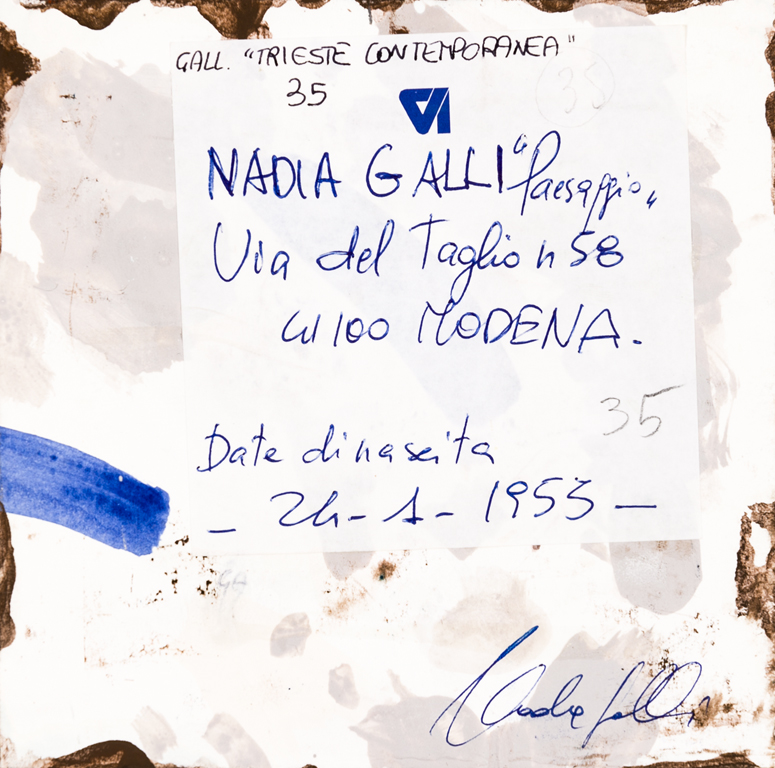 GALL. "TRIESTE CONTEMPORANEA"
35
35
NADIA GALLI "Paesaggio"
Via del Taglio n 58
41100 MODENA.
35
Date di nascita
- 24-1-1953 -
GH
Nadia Galli